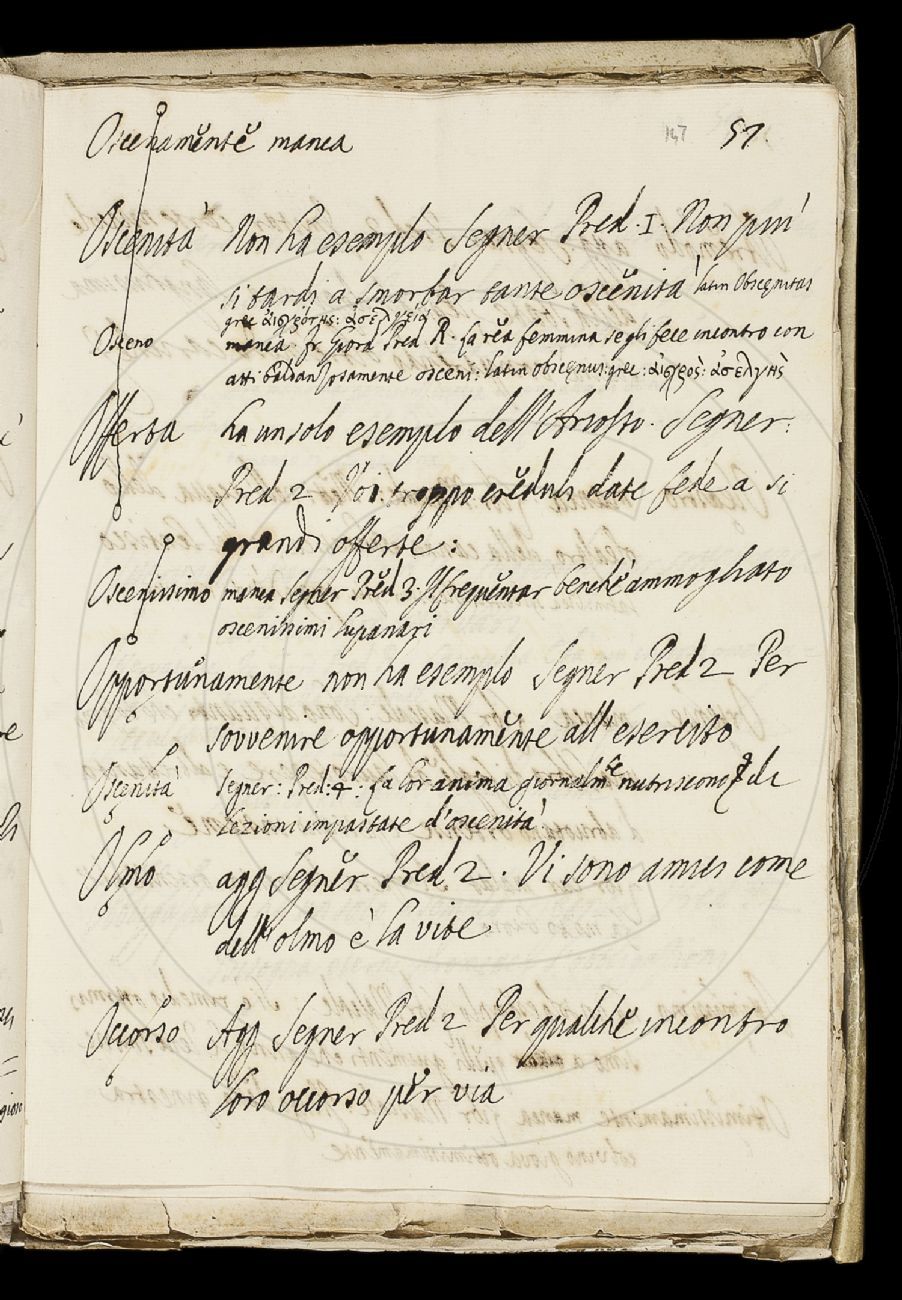 Oscenamente manca 147 57.
Oscenità Non ha esemplo Segner Pred. I. Non più
si tardi a smorbar tante oscenità latin Obscęnitas
grec αἰσχρότης: ἀσέλγεια
Osceno manca. fr Giord Pred R. La rea femmina se gli fece incontro con
atti baldanzosamente osceni: latin obscęnus: grec: αἰσχρὸς: ἀσελγὴς
Offerta ha un solo esemplo dell'Ariosto. Segner:
Pred 2 Voi troppo creduli date fede a si
grandi offerte:
Oscenissimo manca Segner Pred 3. Il frequentar benchè ammogliato
oscenissimi lupanari
Opportunamente non ha esemplo Segner Pred 2 Per
sovvenire opportunamente all'esercito
Oscenità Segner: Pred: 4. La lor anima giornalmte nutriscono di
Lezioni impastate d'oscenità
Olmo agg Segner Pred 2. Vi sono amici come
dell'olmo è la vite
Occorso Agg Segner Pred 2 Per qualche incontro
loro occorso per via